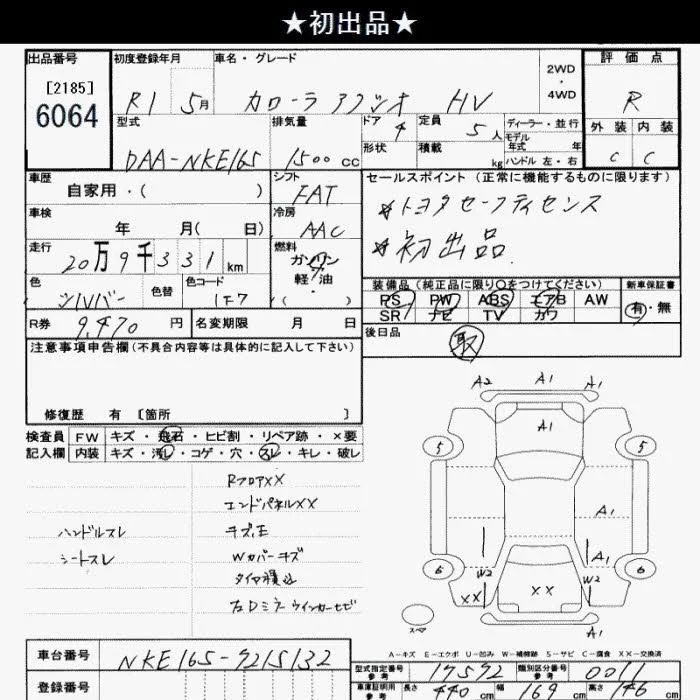 ★初出品★
出品番号 初度登録年月 車名・グレード 2WD・4WD 評価点
[2185]
6064
R1 5月 カローラ アクシオ HV R
型式 排気量 ドア 4 定員 5人 ディーラー・並行 外装 内装
DAA-NKE165 1500cc 形状 積載 kg モデル年式 年 C C
ハンドル 左・右
車歴 シフト セールスポイント (正常に機能するものに限ります)
自家用・( ) FAT ☆トヨタセーフティセンス
車検 冷房
年 月( 日) AAC ☆初出品.
走行 燃料
20万9千331km ガソリン
軽・油
色 色替 色コード ( ) 装備品 (純正品に限り○をつけてください) 新車保証書
シルバー 1F7 PS PW ABS エアB AW 有・無
SR ナビ TV カワ
R券 9,470円 名変期限 月 日 後日品
取
注意事項申告欄 (不具合内容等は具体的に記入して下さい)
修復歴 有 [箇所 ]
検査員 FW キズ・飛石・ヒビ割・リペア跡・×要
記入欄 内装 キズ・汚レ・コゲ・穴・スレ・キレ・破レ
RフロアXX
エンドパネルXX
ハンドルスレ キズ、E
シートスレ Wカバーキズ
タイヤ積込
右Dミラーウインカーサビ
A2 A1 A1
A1
5 5
A1
A1
6 W2 W2 6
XX XX
スペア
A-キズ E-エクボ U-凹み W-補修跡 S-サビ C-腐食 XX-交換済
車台番号 NKE165-7215132 型式指定番号 参考 17592 類別区分番号 参考 0011
登録番号 車庫証明用 参考 長さ 440cm 幅 169cm 高さ 146cm